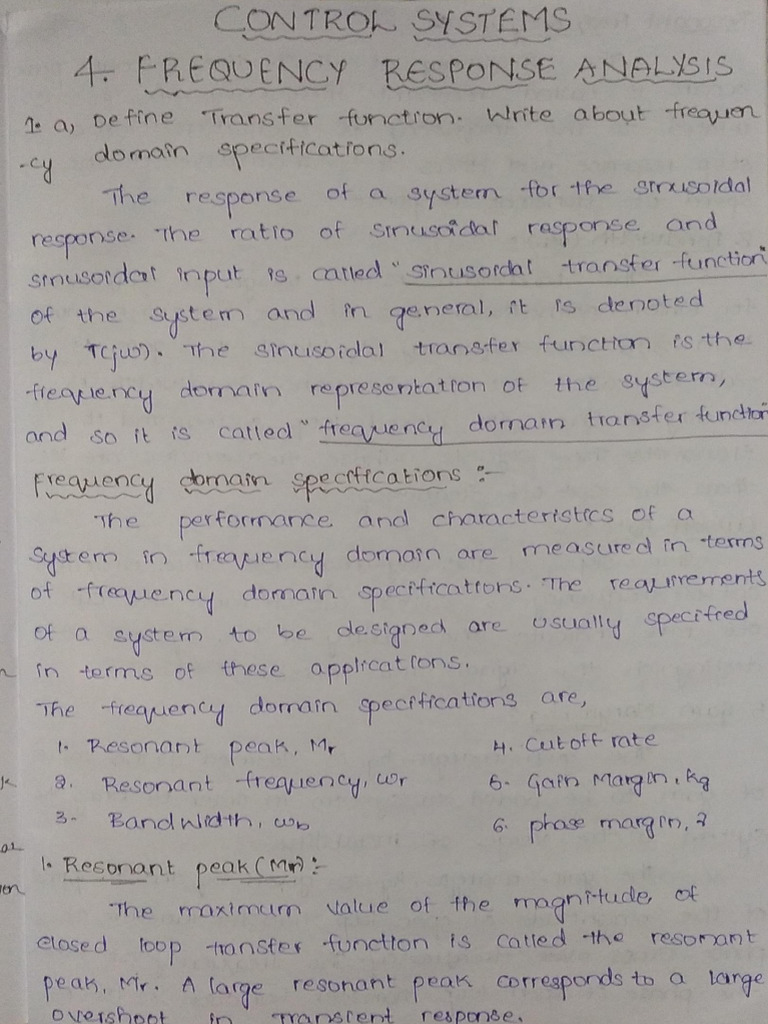 CONTROL SYSTEMS
4. FREQUENCY RESPONSE ANALYSIS
1. a, Define Transfer function. Write about frequen
-cy domain specifications.
The response of a system for the sinusoidal
response. The ratio of sinusoidal response and
sinusoidal input is called "sinusoidal transfer function"
of the system and in general, it is denoted
by T(jω). The sinusoidal transfer function is the
frequency domain representation of the system,
and so it is called "frequency domain transfer function
Frequency domain specifications :-
The performance and characteristics of a
system in frequency domain are measured in terms
of frequency domain specifications. The requirements
of a system to be designed are usually specified
in terms of these applications.
The frequency domain specifications are,
1. Resonant peak, Mr
4. Cutoff rate
2. Resonant frequency, ωr
5. Gain Margin, kg
3. Band Width, ωb
6. phase margin,
1. Resonant peak (Mr) :-
The maximum value of the magnitude of
closed loop transfer function is called the resonant
peak, Mr. A large resonant peak corresponds to a large
overshoot in transient response.